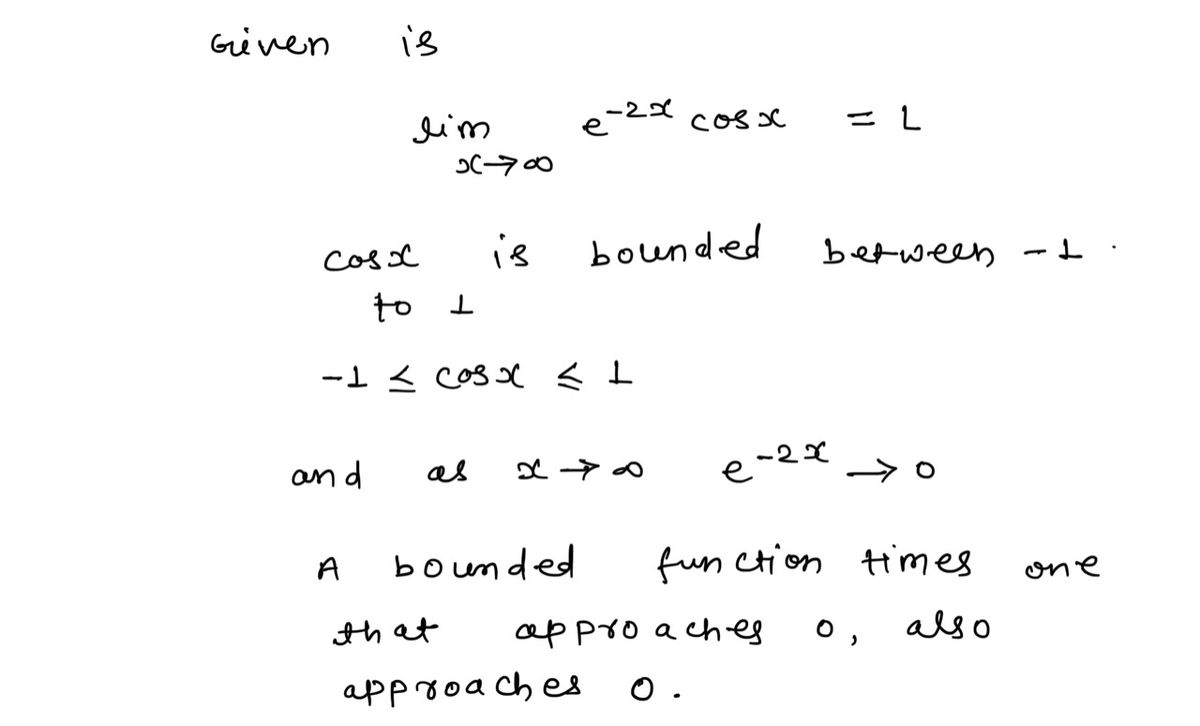 Given is
lim e^{-2x} cosx = L
x→∞
cosx is bounded between -1
to 1
-1 ≤ cosx ≤ 1
and as x→∞ e^{-2x} → 0
A bounded function times one
that approaches 0, also
approaches 0.